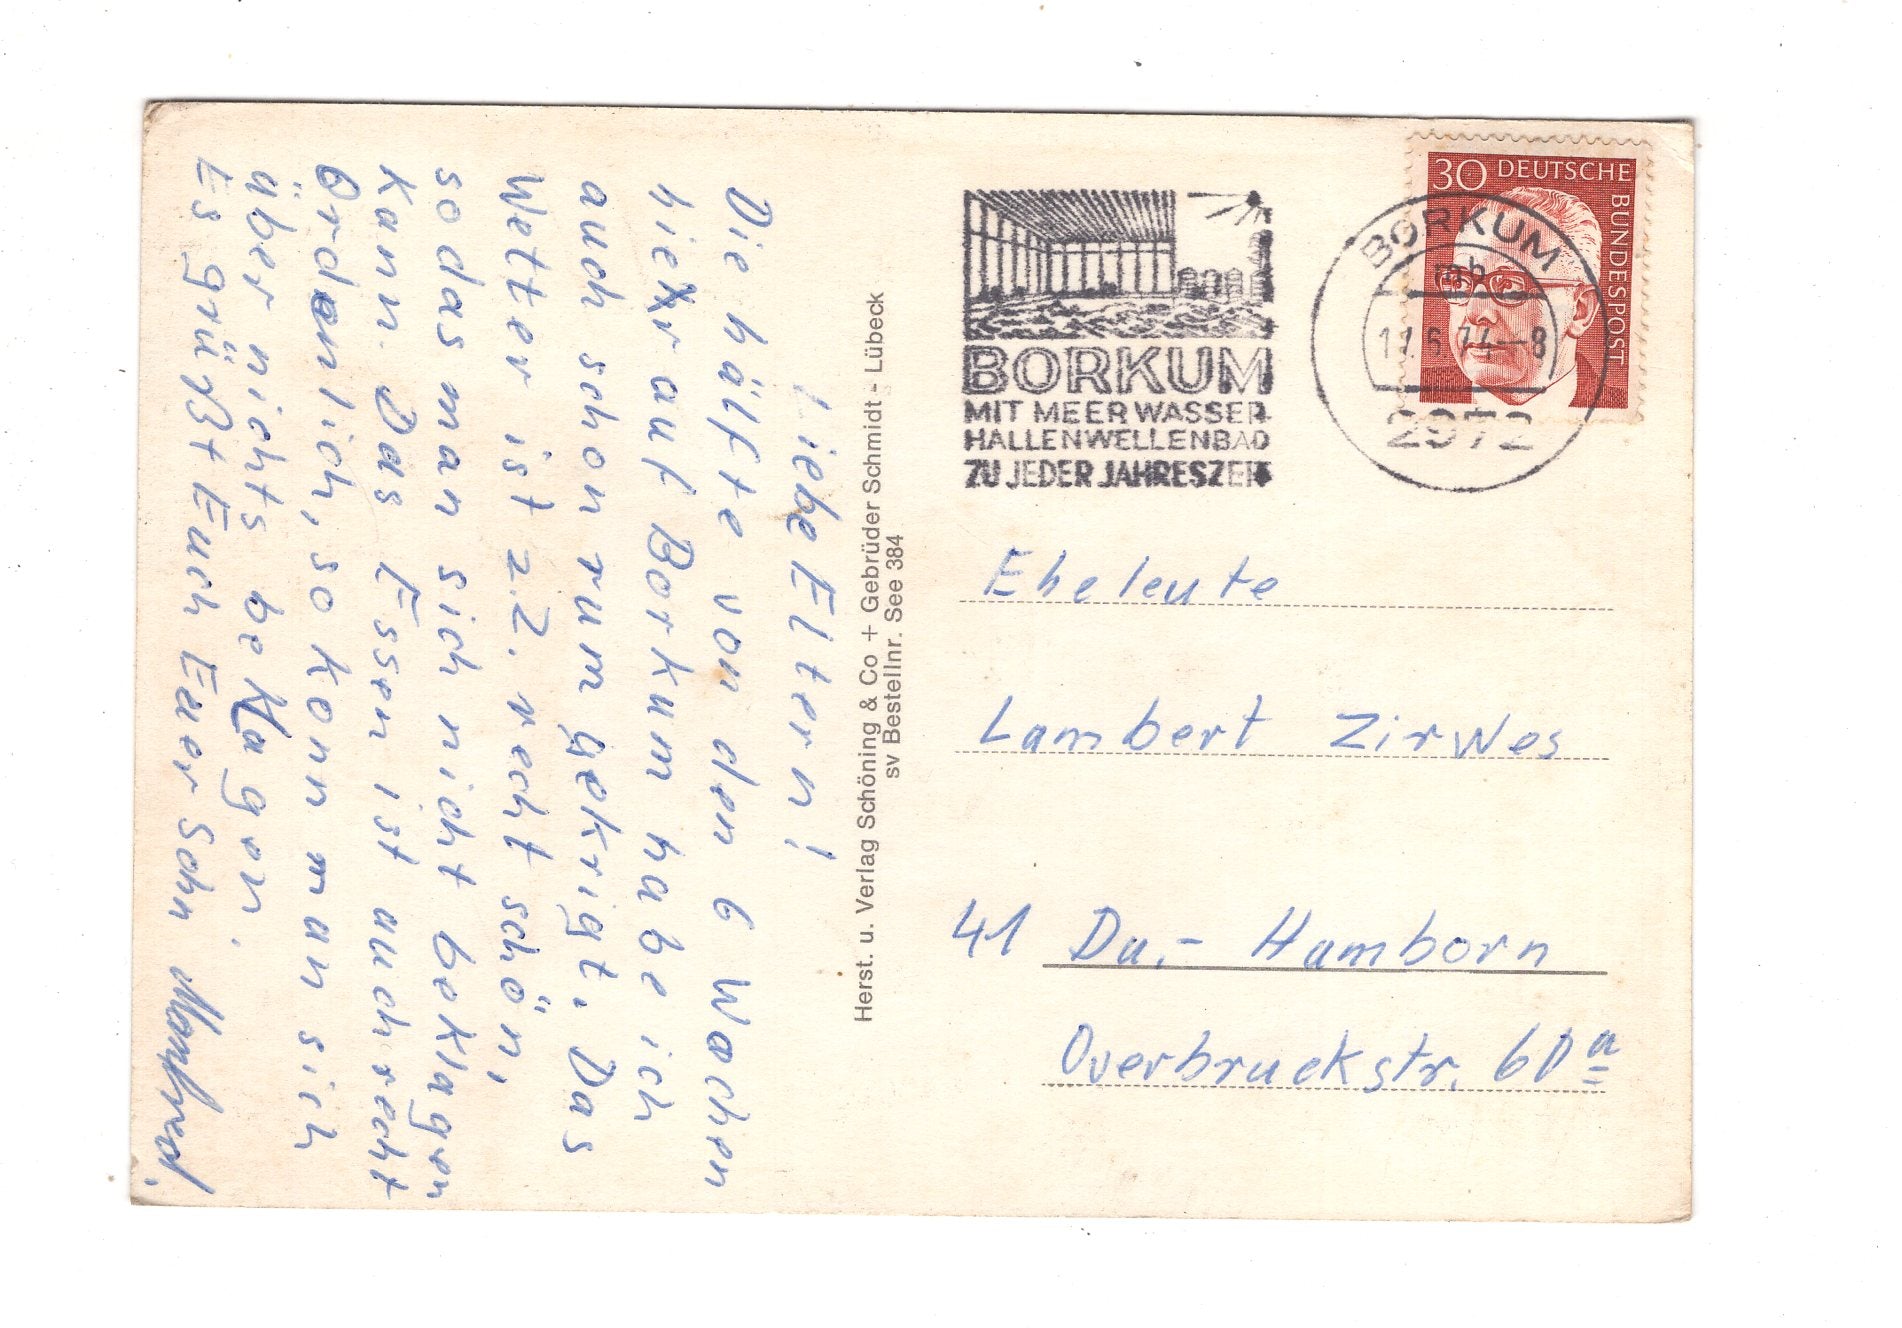 Liebe Eltern!
Die hälfte von den 6 Wochen
hier auf Borkum habe ich
auch schon rum gekrigt. Das
Wetter ist z.Z. recht schön,
sodas man sich nicht beklagen
kann. Das Essen ist auch recht
Ordenlich, so kann man sich
über nichts beklagen.
Es grüßt Euch Euer Sohn Manfred.
Herst. u. Verlag Schöning & Co + Gebrüder Schmidt - Lübeck
sv Bestellnr. See 384
BORKUM
MIT MEERWASSER-
HALLENWELLENBAD
ZU JEDER JAHRESZEIT
30 DEUTSCHE BUNDESPOST
BORKUM
mb
-8
2972
Eheleute
Lambert Zirwes
41 Du.- Hamborn
Overbruckstr.